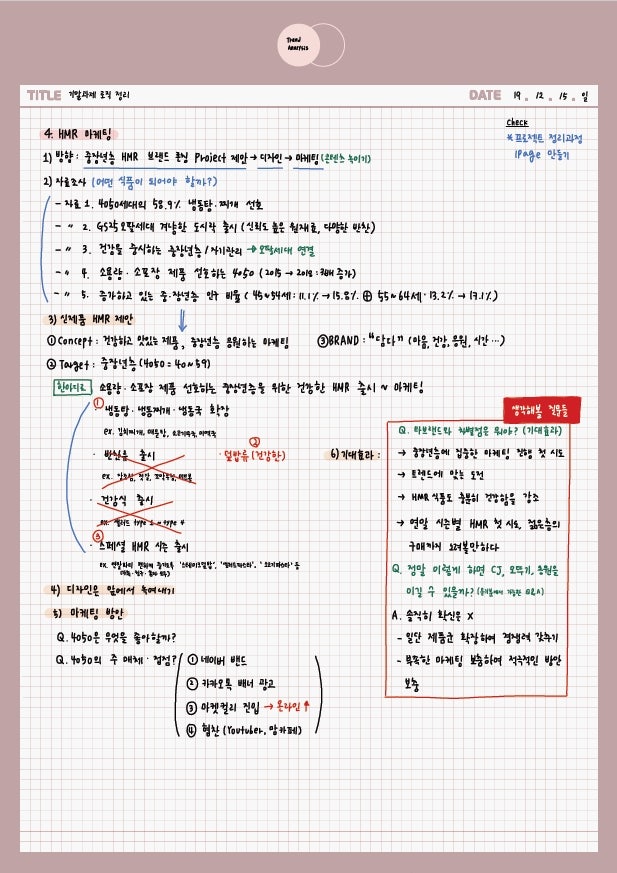 Trend
Analysis
TITLE 기말과제 로직 정리
DATE 19. 12. 15. 일
check
* 프로젝트 정리과정
1page 만들기
4. HMR 마케팅
1) 방향 : 중장년층 HMR 브랜드 론칭 Project 제안 → 디자인 → 마케팅 (콘텐츠 녹이기)
2) 자료조사 (어떤 식품이 되어야 할까?)
- 자료 1. 4050세대의 58.9% 냉동탕·찌개 선호
- 〃 2. GS25 오팔세대 겨냥한 도시락 출시 (신뢰도 높은 원재료, 다양한 반찬)
- 〃 3. 건강을 중시하는 중장년층 / 자기관리 → 오팔세대 연결
- 〃 4. 소용량·소포장 제품 선호하는 4050 (2015 → 2018 : 3배 증가)
- 〃 5. 증가하고 있는 중·장년층 인구 비율 (45~54세 : 11.1% → 15.8% ⊕ 55~64세 · 13.2% → 17.1%)
3) 신제품 HMR 제안
① Concept : 건강하고 맛있는 제품, 중장년층 응원하는 마케팅
③ BRAND : "담다" (마음, 건강, 응원, 시간 …)
② Target : 중장년층 (4050 = 40~59)
한마디로 소용량·소포장 제품 선호하는 중장년층을 위한 건강한 HMR 출시 ~ 마케팅
① · 냉동탕·냉동찌개·냉동국 확장
ex. 김치찌개, 매운탕, 소고기무국, 미역국
· 반찬류 출시
② · 덮밥류 (건강한)
· 건강식 출시
ex. 샐러드 type
③ · 스페셜 HMR 시즌 출시
4) 디자인은 앞에서 녹여내기
5) 마케팅 방안
Q. 4050은 무엇을 좋아할까?
Q. 4050의 주 매체·접점?
① 네이버 밴드
② 카카오톡 배너 광고
③ 마켓컬리 진입 → 온라인↑
④ 협찬 (Youtuber, 맘카페)
6) 기대효과 :
생각해볼 질문들
Q. 타브랜드와 차별점은 뭐야? (기대효과)
→ 중장년층에 집중한 마케팅 진행 첫 시도
→ 트렌드에 맞는 도전
→ HMR식품도 충분히 건강함을 강조
→ 연말 시즌별 HMR 첫 시도, 젊은층의
구매까지 노려볼만하다
Q. 정말 이렇게 하면 CJ, 오뚜기, 동원을
이길 수 있을까?
A. 솔직히 확신은 X
- 일단 제품군 확장하여 경쟁력 갖추기
- 부족한 마케팅 보충하여 적극적인 방안
보충